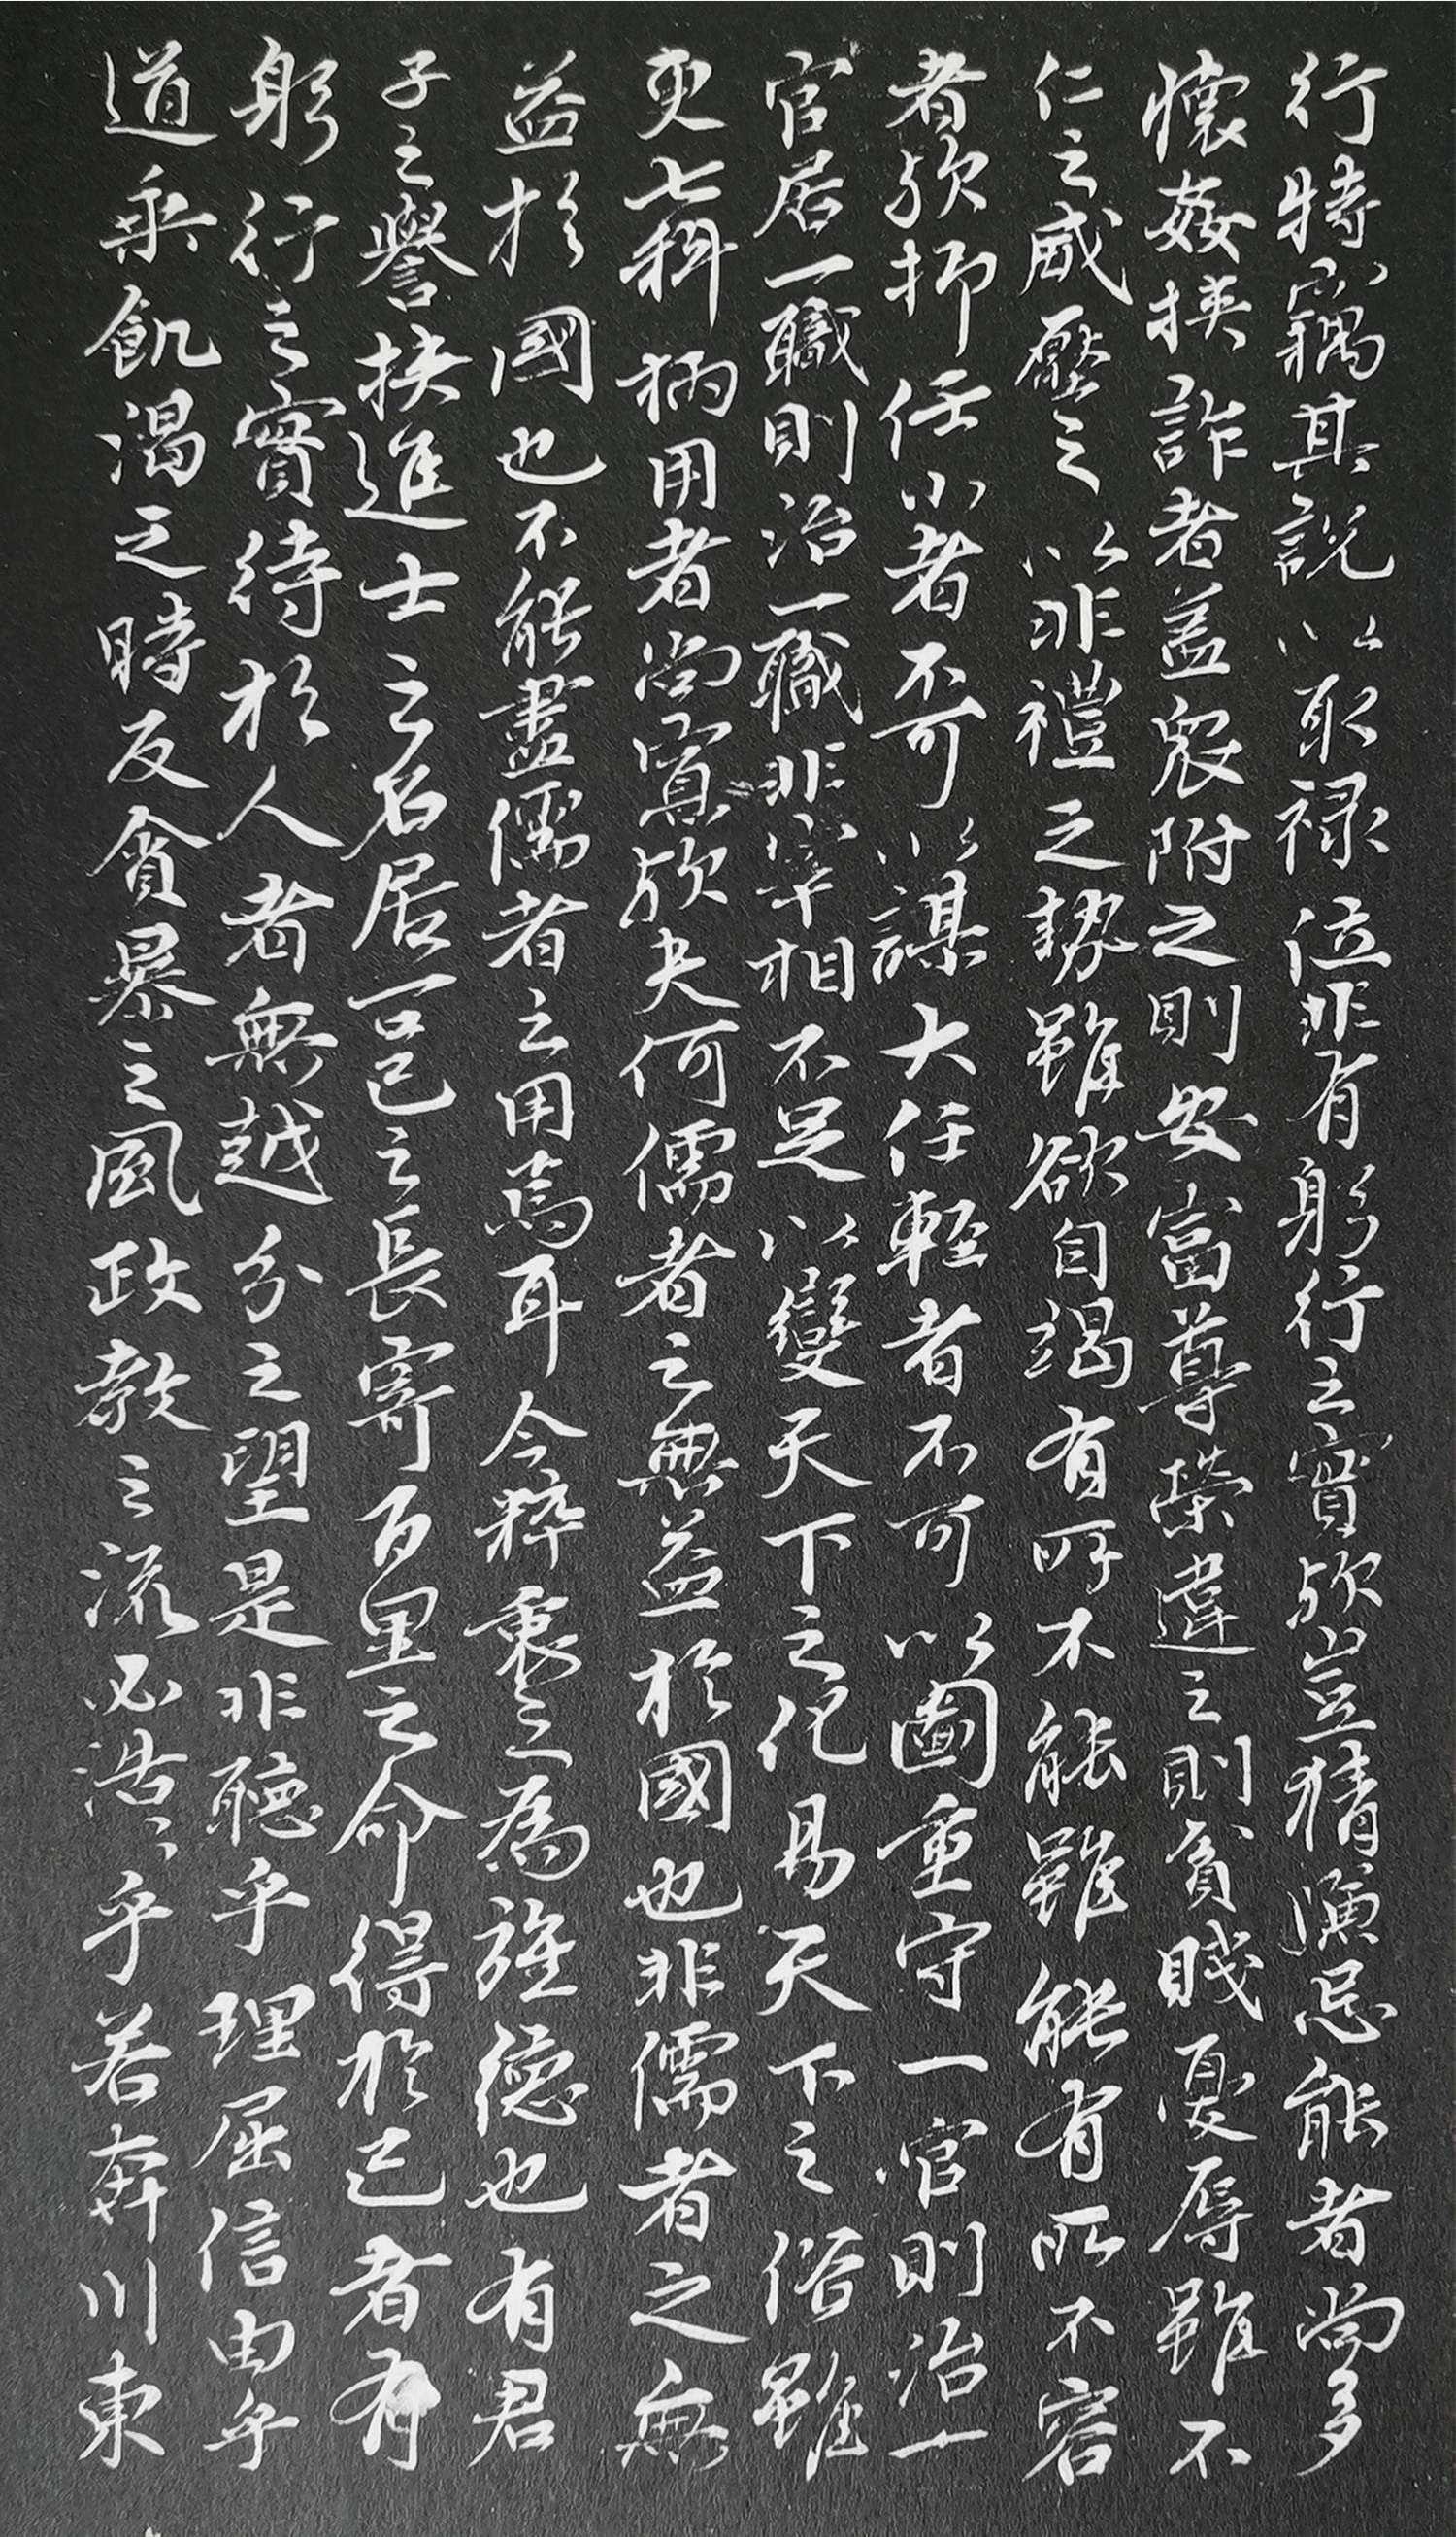 行特竊其說以取祿位非有躬行之實歟豈猜演忌能者尚多
懷姦挾詐者蓋衆附之則安富尊榮違之則貧賤憂辱雖不
仁之威壓之以非禮之勢雖欲自竭有所不能雖能有所不容
者歟抑任小者不可以謀大任輕者不可以圖重守一官則治一
官居一職則治一職非宰相不足以變天下之化易天下之俗雖
更七科柄用者尚寡歟夫何儒者之無益於國也非儒者之無
益於國也不能盡儒者之用焉耳今粹衷之為雅德也有君
子之譽挾進士之名居一己之長寄百里之命得於己者有
躬行之實待於人者無越分之望是非聽乎理屈信由乎
道乘飢渴之時反貪暴之風政教之流必浩々乎若奔川東